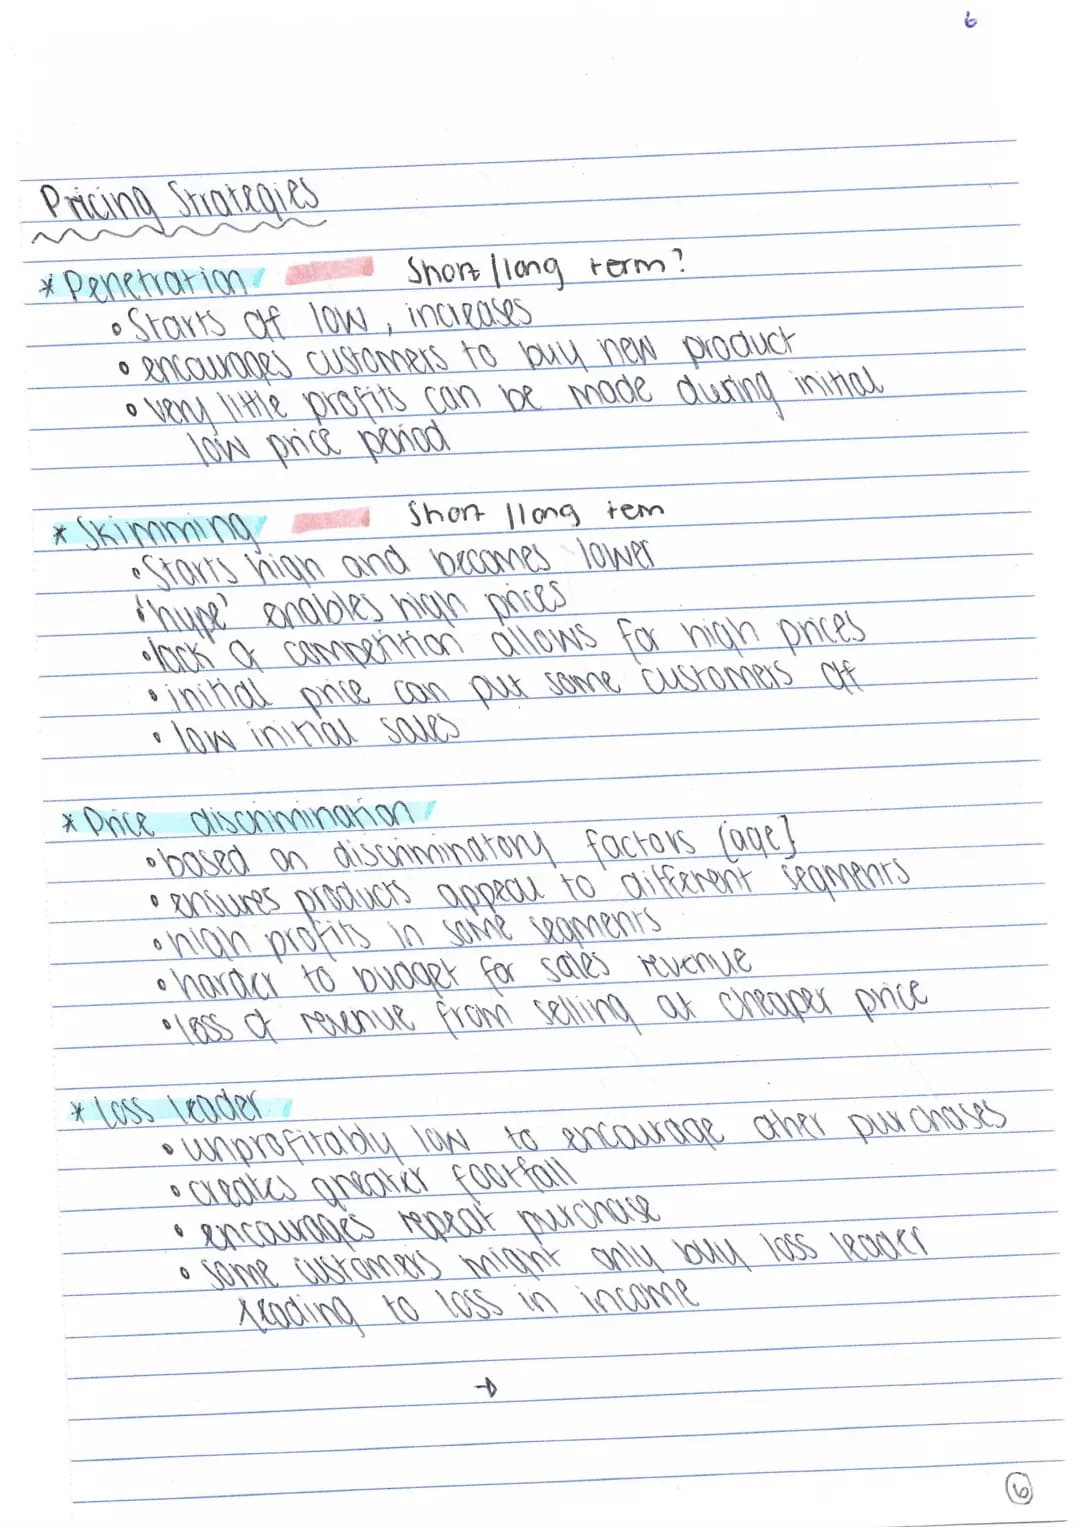 6
Pricing Strategies
* Penetration Short/long term?
• Starts off low, increases
• encourages customers to buy new product
• very little profits can be made during initial
low price period
* Skimming Short/long tem
• Starts high and becomes lower
• 'hype' enables high prices
• lack of competition allows for high prices
• initial price can put some customers off
• low initial sales
* Price discrimination
• based on discriminatory factors [age]
• ensures products appeal to different segments
• high profits in some segments
• harder to budget for sales revenue
• loss of revenue from selling at cheaper price
* loss leader
• unprofitably low to encourage other purchases
• creates greater footfall
• encourages repeat purchase
• some customers might only buy loss leader
leading to loss in income
→
6